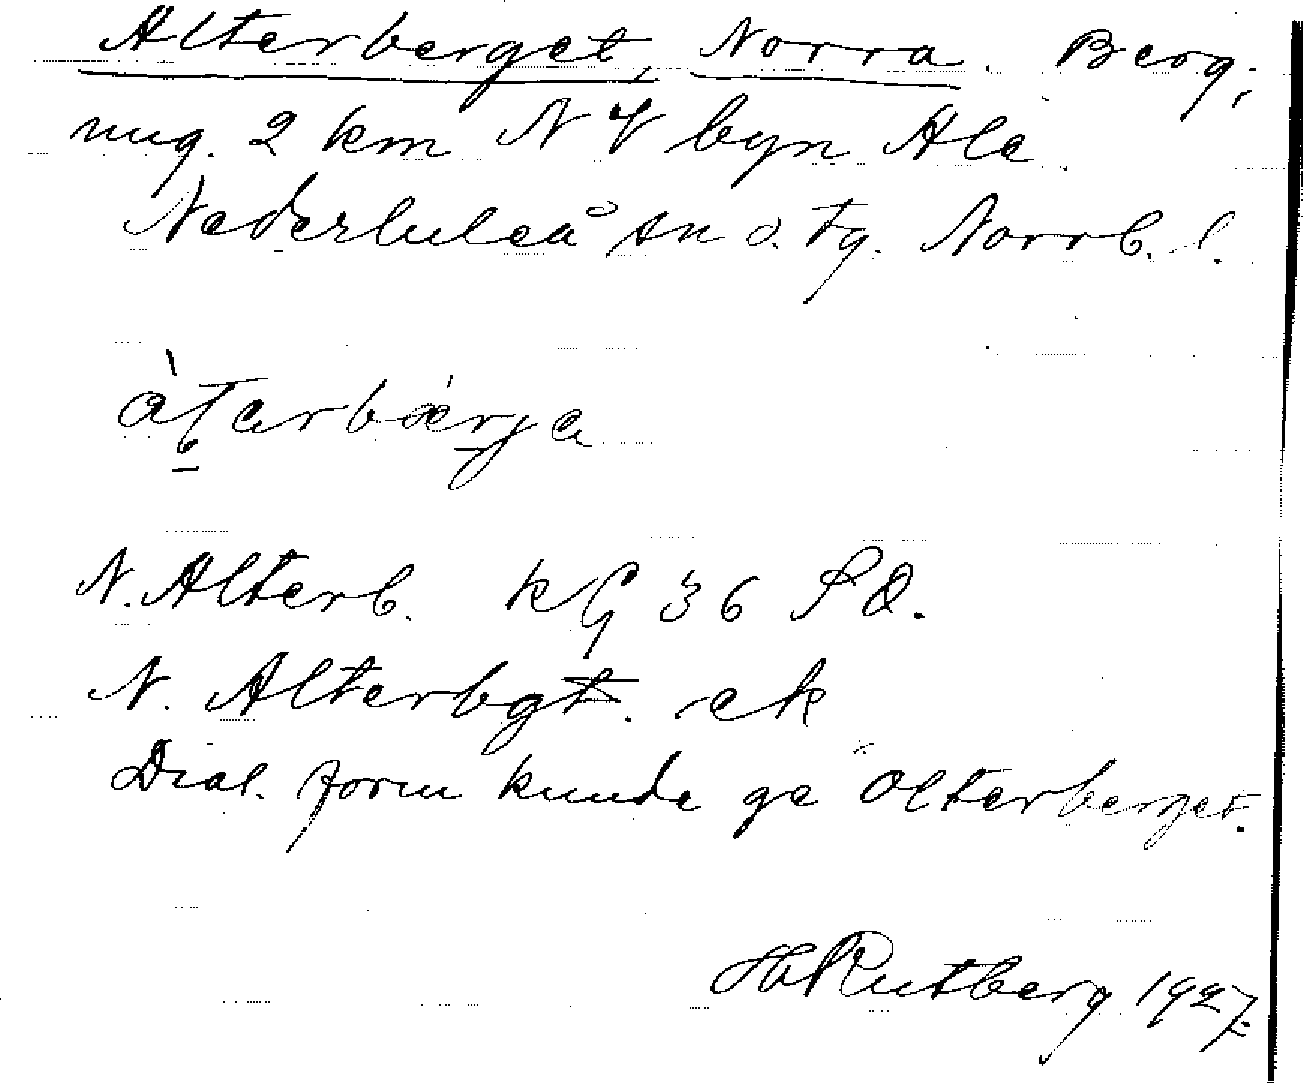 Alterberget, Norra. Berg,
ung. 2 km N V byn Ale
Nederluleå sn o. tg. Norrb. l.
N. Alterb. k G 36 SO.
N. Alterbgt. ek
Dial. form kunde ge Olterberget.
H Rutberg 1927.